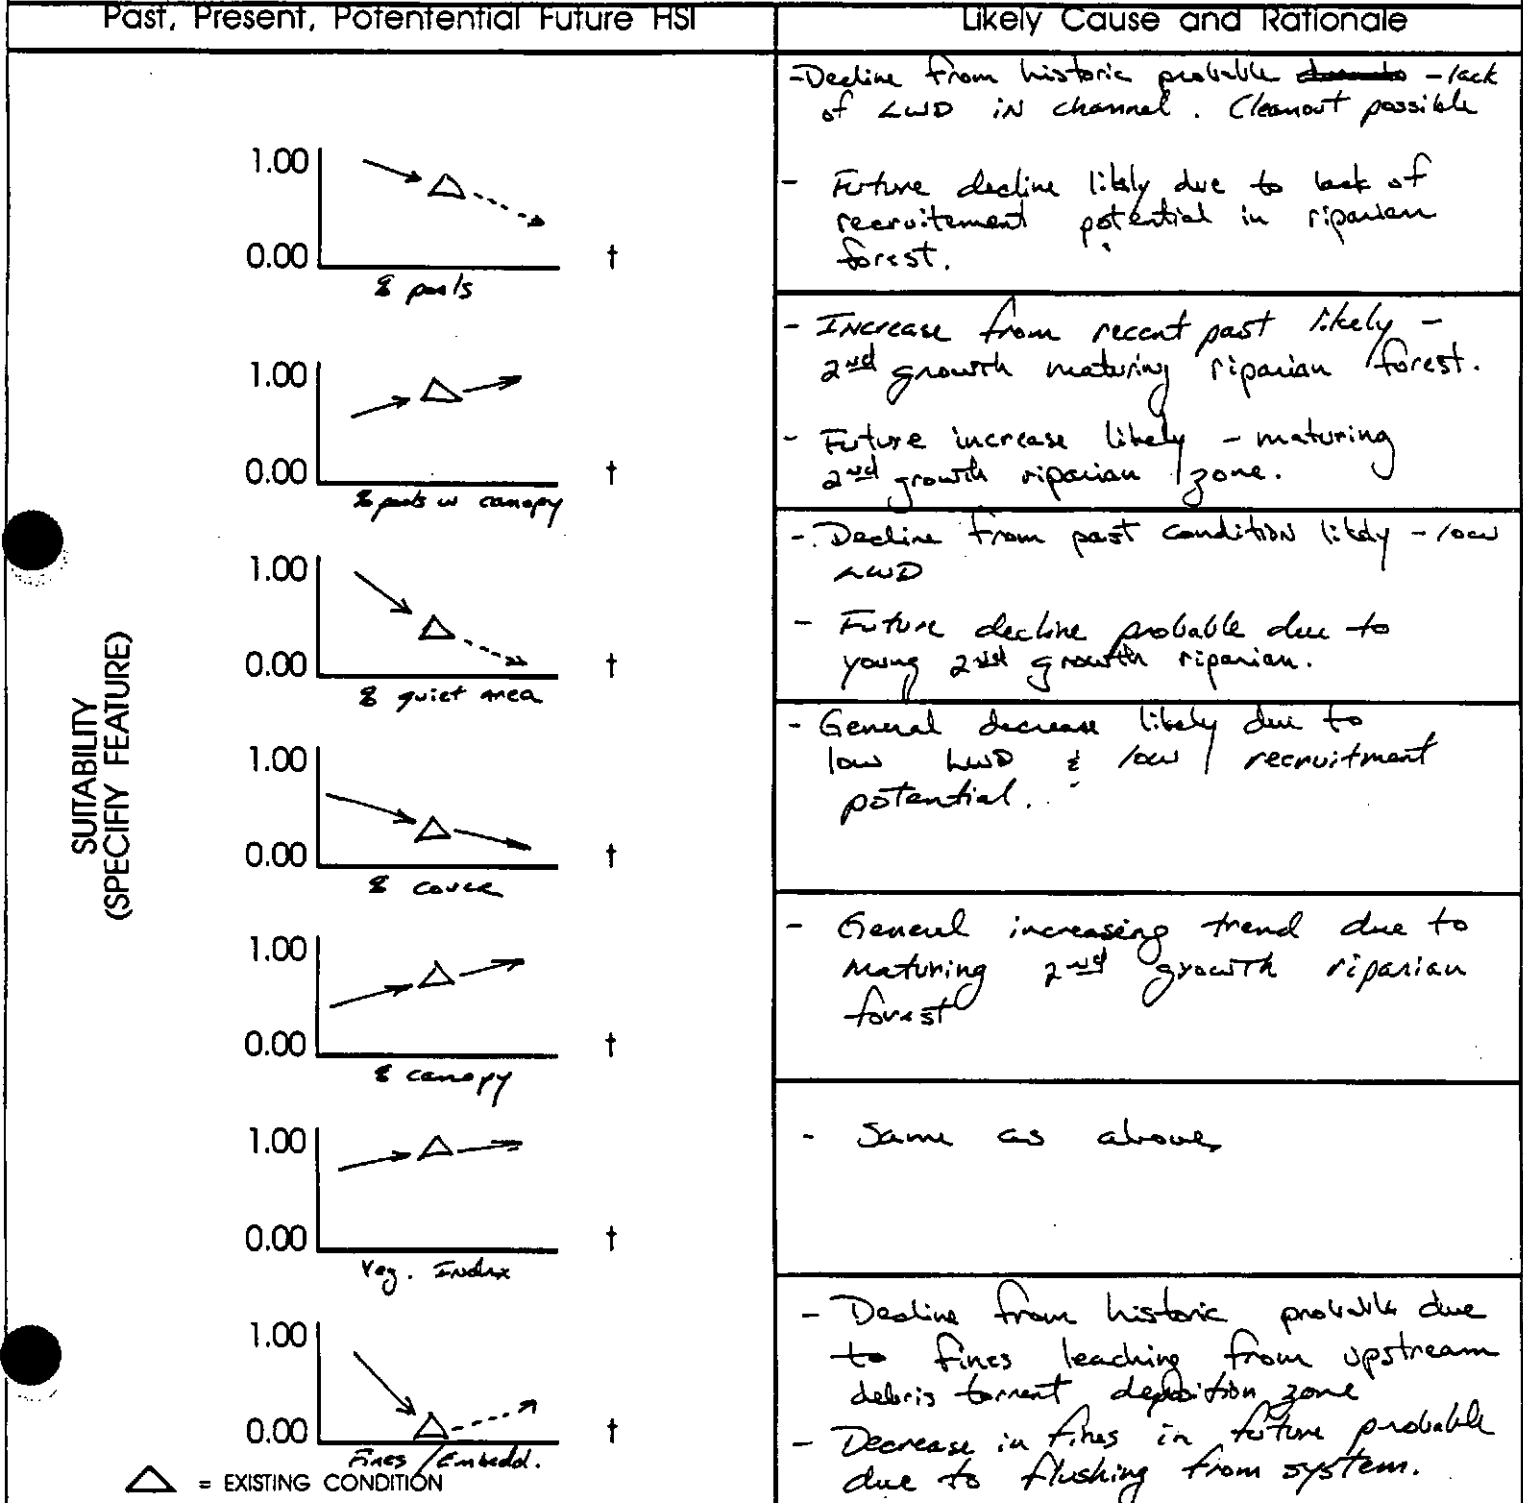 Past, Present, Potentential Future HSI
Likely Cause and Rationale
SUITABILITY
(SPECIFIY FEATURE)
1.00
0.00
t
% pools
- Decline from historic probable - lack
of LWD in channel. Cleanout possible
- Future decline likely due to lack of
recruitement potential in riparian
forest.
1.00
0.00
t
% pools w canopy
- Increase from recent past likely -
2nd growth maturing riparian forest.
- Future increase likely - maturing
2nd growth riparian zone.
1.00
0.00
t
% quiet area
- Decline from past condition likely - low
LWD
- Future decline probable due to
young 2nd growth riparian.
1.00
0.00
t
% cover
- General decrease likely due to
low LWD & low recruitment
potential.
1.00
0.00
t
% canopy
- General increasing trend due to
maturing 2nd growth riparian
forest
1.00
0.00
t
Veg. Index
- Same as above
1.00
0.00
t
Fines / Embedd.
- Decline from historic probable due
to fines leaching from upstream
debris torrent deposition zone
- Decrease in fines in future probable
due to flushing from system.
△ = EXISTING CONDITION